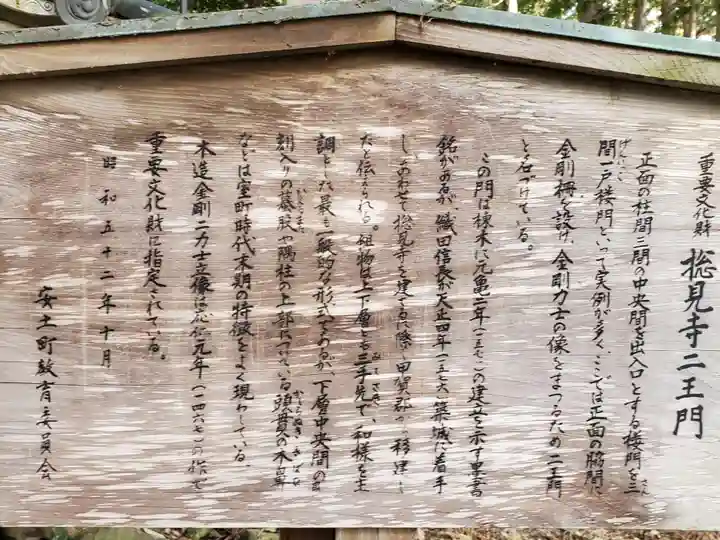 重要文化財 摠見寺二王門
正面の柱間三間の中央間を出入口とする楼門を三
げんいっこ さん
間一戸楼門といって実例が多く、ここでは正面の脇間に
金剛柵を設け、金剛力士の像をまつるため二王門
と名づけている。
この門は棟木に元亀二年(一五七一)の建立を示す墨書
銘があるが、織田信長が天正四年(一五七六)築城に着手
し、あわせて摠見寺を建てるに際し甲賀郡から移建し
たと伝えられる。組物は上下層とも三手先で、和様を主
みてさき
調とした最も一般的な形式であるが、下層中央間の
割入りの蟇股や隅柱の上部につけている頭貫の木鼻
かえるまた かしらぬき きばな
などは室町時代末期の特徴をよく現わしている。
木造金剛二力士立像は応仁元年(一四六七)の作で
重要文化財に指定されている。
昭和五十二年十月
安土町教育委員会